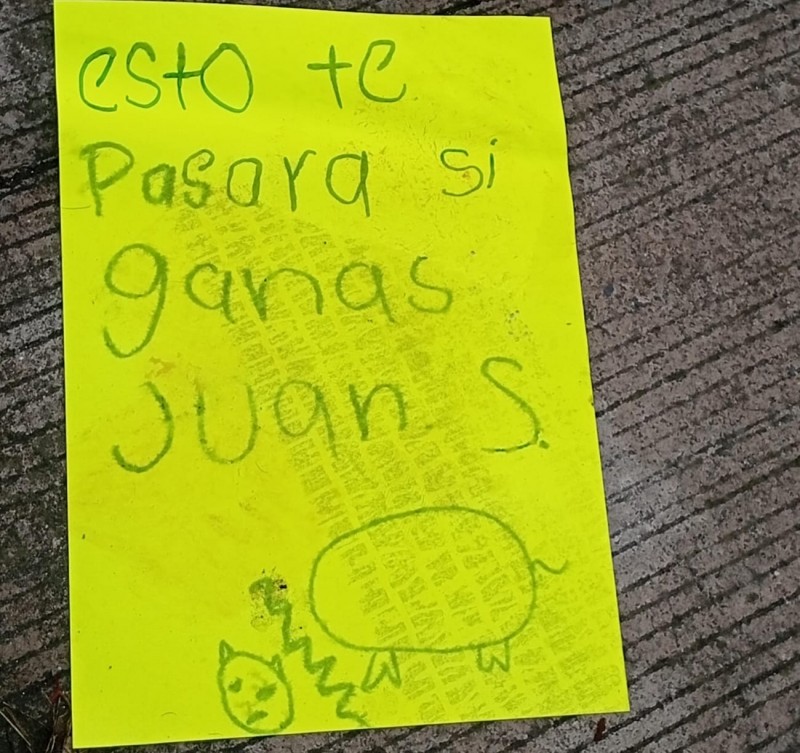 esto te
Pasara si
ganas
Juan S.